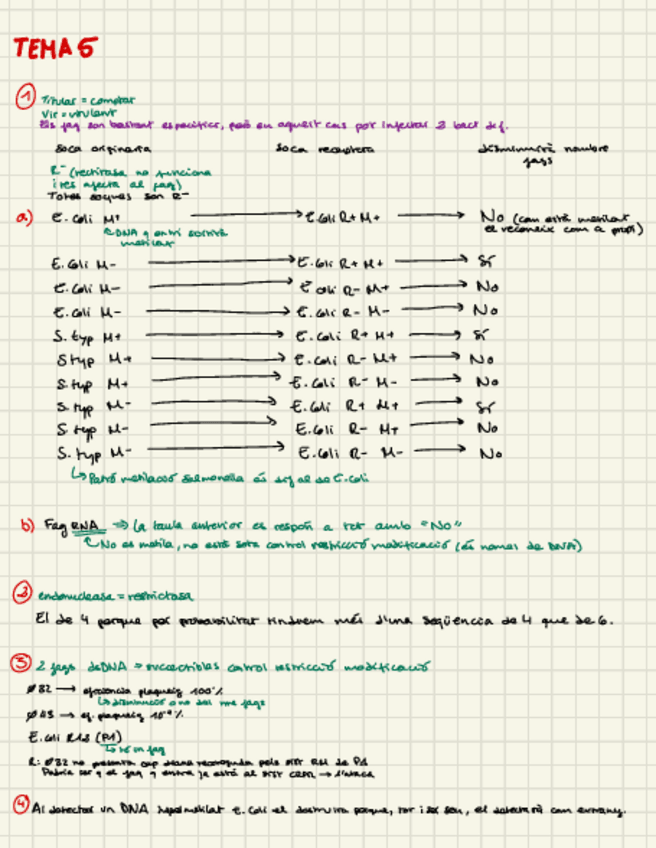 TEMA 5
1 Titular = comptar
Vir = virulent
Els fag son bastant especifics, però en aquest cas pot infectar 2 bact dif.
Soca originaria Soca receptora disminuirà nombre
fags
R⁻ (restrictasa no funciona
i res afecta al fag)
Totes soques son R⁻
a) E. Coli M+ → E. Coli R+ M+ → No (com està metilat
el reconeix com a propi)
DNA q entri sortirà
metilat
E. Coli M- → E. Coli R+ M+ → Sí
E. Coli M- → E. Coli R- M+ → No
E. Coli M- → E. Coli R- M- → No
S. typ M+ → E. Coli R+ M+ → Sí
S typ M+ → E. Coli R- M+ → No
S typ M+ → E. Coli R- M- → No
S. typ M- → E. Coli R+ M+ → Sí
S typ M- → E. Coli R- M+ → No
S. typ M- → E. Coli R- M- → No
↳ Patró metilació Salmonella és dif al de E. Coli
b) Fag RNA ⇒ la taula anterior es respon a tot amb "No"
No es metila, no està sota control restricció modificació (és només de DNA)
2 endonucleasa = restrictasa
El de 4 porque per probabilitat tindrem més d'una seqüencia de 4 que de 6.
3 2 fags dsDNA = susceptibles control restricció modificació
ø82 → eficiencia plaqueig 100%
↳ disminució o no del nre fags
→ ef. plaqueig
E. coli (P1)
fag
R: ø82 no presenta cap diana reconeguda pels sist RM de P1
Podria ser q el fag q entra ja està al sist → l'ataca
4 Al detectar un DNA hemimetilat E. Coli el destruirà porque, tot i ser seu, el detectarà com estrany.